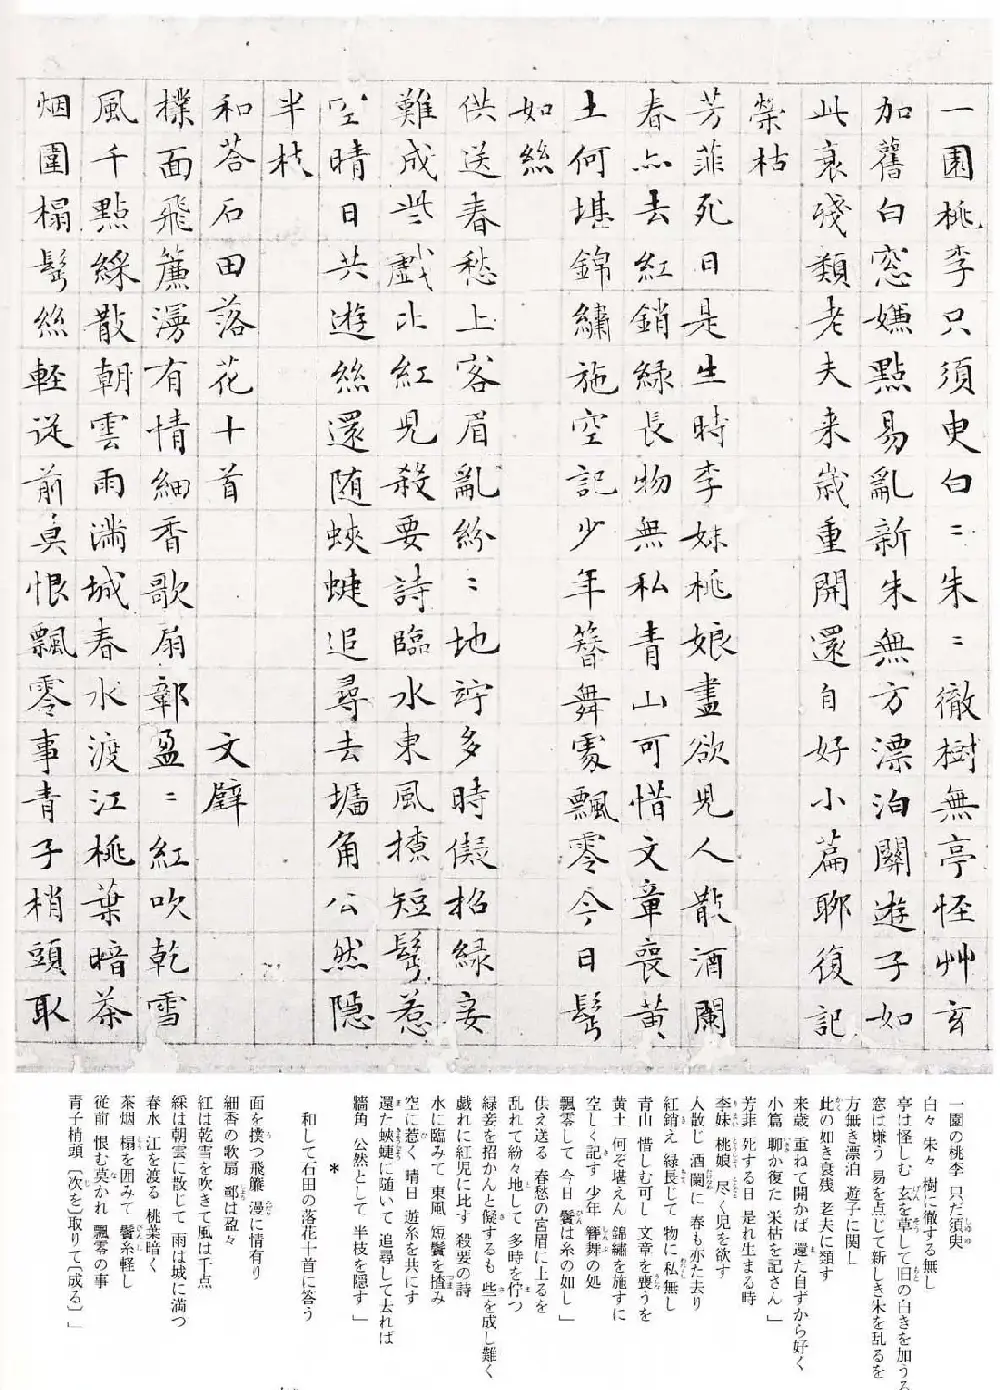 一園桃李只須臾白〻朱〻徹樹無亭怪艸玄
加舊白窓嫌點易亂新朱無方漂泊關遊子如
此衰殘類老夫来歳重開還自好小篇聊復記
榮枯
芳菲死日是生時李妹桃娘盡欲兒人散酒闌
春亦去紅銷緑長物無私青山可惜文章喪黄
土何堪錦繡施空記少年簪舞處飄零今日鬢
如絲
供送春愁上客眉亂紛〻地竚多時儗招緑妾
難成些戲比紅兒殺要詩臨水東風撩短鬢惹
空晴日共遊絲還随蛺蝶追尋去墻角公然隱
半枝
和荅石田落花十首 文壁
撲面飛簾漫有情細香歌扇鄣盈〻紅吹乾雪
風千點綵散朝雲雨满城春水渡江桃葉暗茶
烟圍榻鬢絲輕従前莫恨飄零事青子梢頭取
一園の桃李 只だ須臾
白々 朱々 樹に徹する無し
亭は怪しむ 玄を草して旧の白きを加うるを
窓は嫌う 易を点じて新しき朱を乱るを
方無き漂泊 遊子に関し
此の如き衰残 老夫に類す
来歳 重ねて開かば 還た自ずから好く
小篇 聊か復た 栄枯を記さん」
芳菲 死する日 是れ生まる時
李妹 桃娘 尽く児を欲す
人散じ 酒闌に 春も亦た去り
紅銷え 緑長じて 物に私無し
青山 惜しむ可し 文章を喪うを
黄土 何ぞ堪えん 錦繡を施すに
空しく記す 少年 簪舞の処
飄零して 今日 鬢は糸の如し」
供え送る 春愁の宮眉に上るを
乱れて紛々地して 多時を佇つ
緑妾を招かんと儗するも 些を成し難く
戯れに紅児に比す 殺要の詩
水に臨みて 東風 短鬢を撩み
空に惹く 晴日 遊糸を共にす
還た蛺蝶に随いて 追尋して去れば
牆角 公然として 半枝を隠す」
*
和して石田の落花十首に答う
面を撲つ飛簾 漫に情有り
細香の歌扇 鄣は盈々
紅は乾雪を吹きて風は千点
綵は朝雲に散じて 雨は城に満つ
春水 江を渡る 桃葉暗く
茶烟 榻を囲みて 鬢糸軽し
従前 恨む莫かれ 飄零の事
青子梢頭〔次を〕取りて〔成る〕」